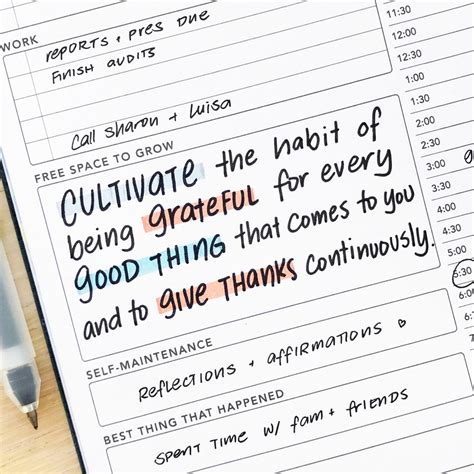 WORK
REPORTS + PRES DUE
FINISH AUDITS
Call SHARON + LUISA
FREE SPACE TO GROW
CULTIVATE the habit of
being grateful for every
GOOD THING that comes to you
and to GIVE THANKS continuously.
SELF-MAINTENANCE
REFLECTIONS + AFFIRMATIONS
BEST THING THAT HAPPENED
SPENT TIME W/ FAM + FRIENDS
11:30
12:00
12:30
1:00
1:30
2:00
2:30
3:00
3:30
4:00
4:30
5:00
5:30
6:00
6:30
7:00